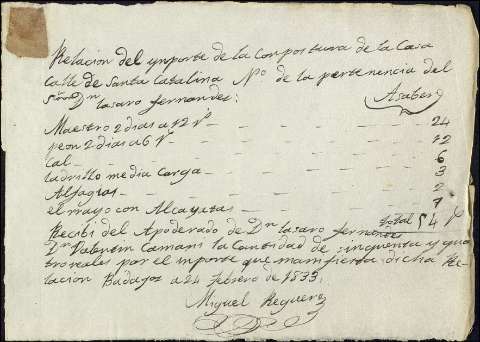 Relacion del ynporte de la Conpostura de la Casa
Calle de Santa Catalina Nº de la pertenencia del
Señor Dn lasaro fernandes:
Asaber
Maestro 2 dias a 12 rs - - - - 24
peon 2 dias a 6 rs - - - - 12
Cal - - - - 6
ladrillo media Carga - - - - 3
Alfagias - - - - 2
el mayo con Alcayatas - - - - 7
total 54
Recibi del Apoderado de Dn lasaro fernandes
Dn Valentin Camans la Cantidad de sinquenta y qua
tro reales por el inporte que manifiesta dicha Re-
lacion Badajoz a 24 febrero de 1833.
Miguel Reguera